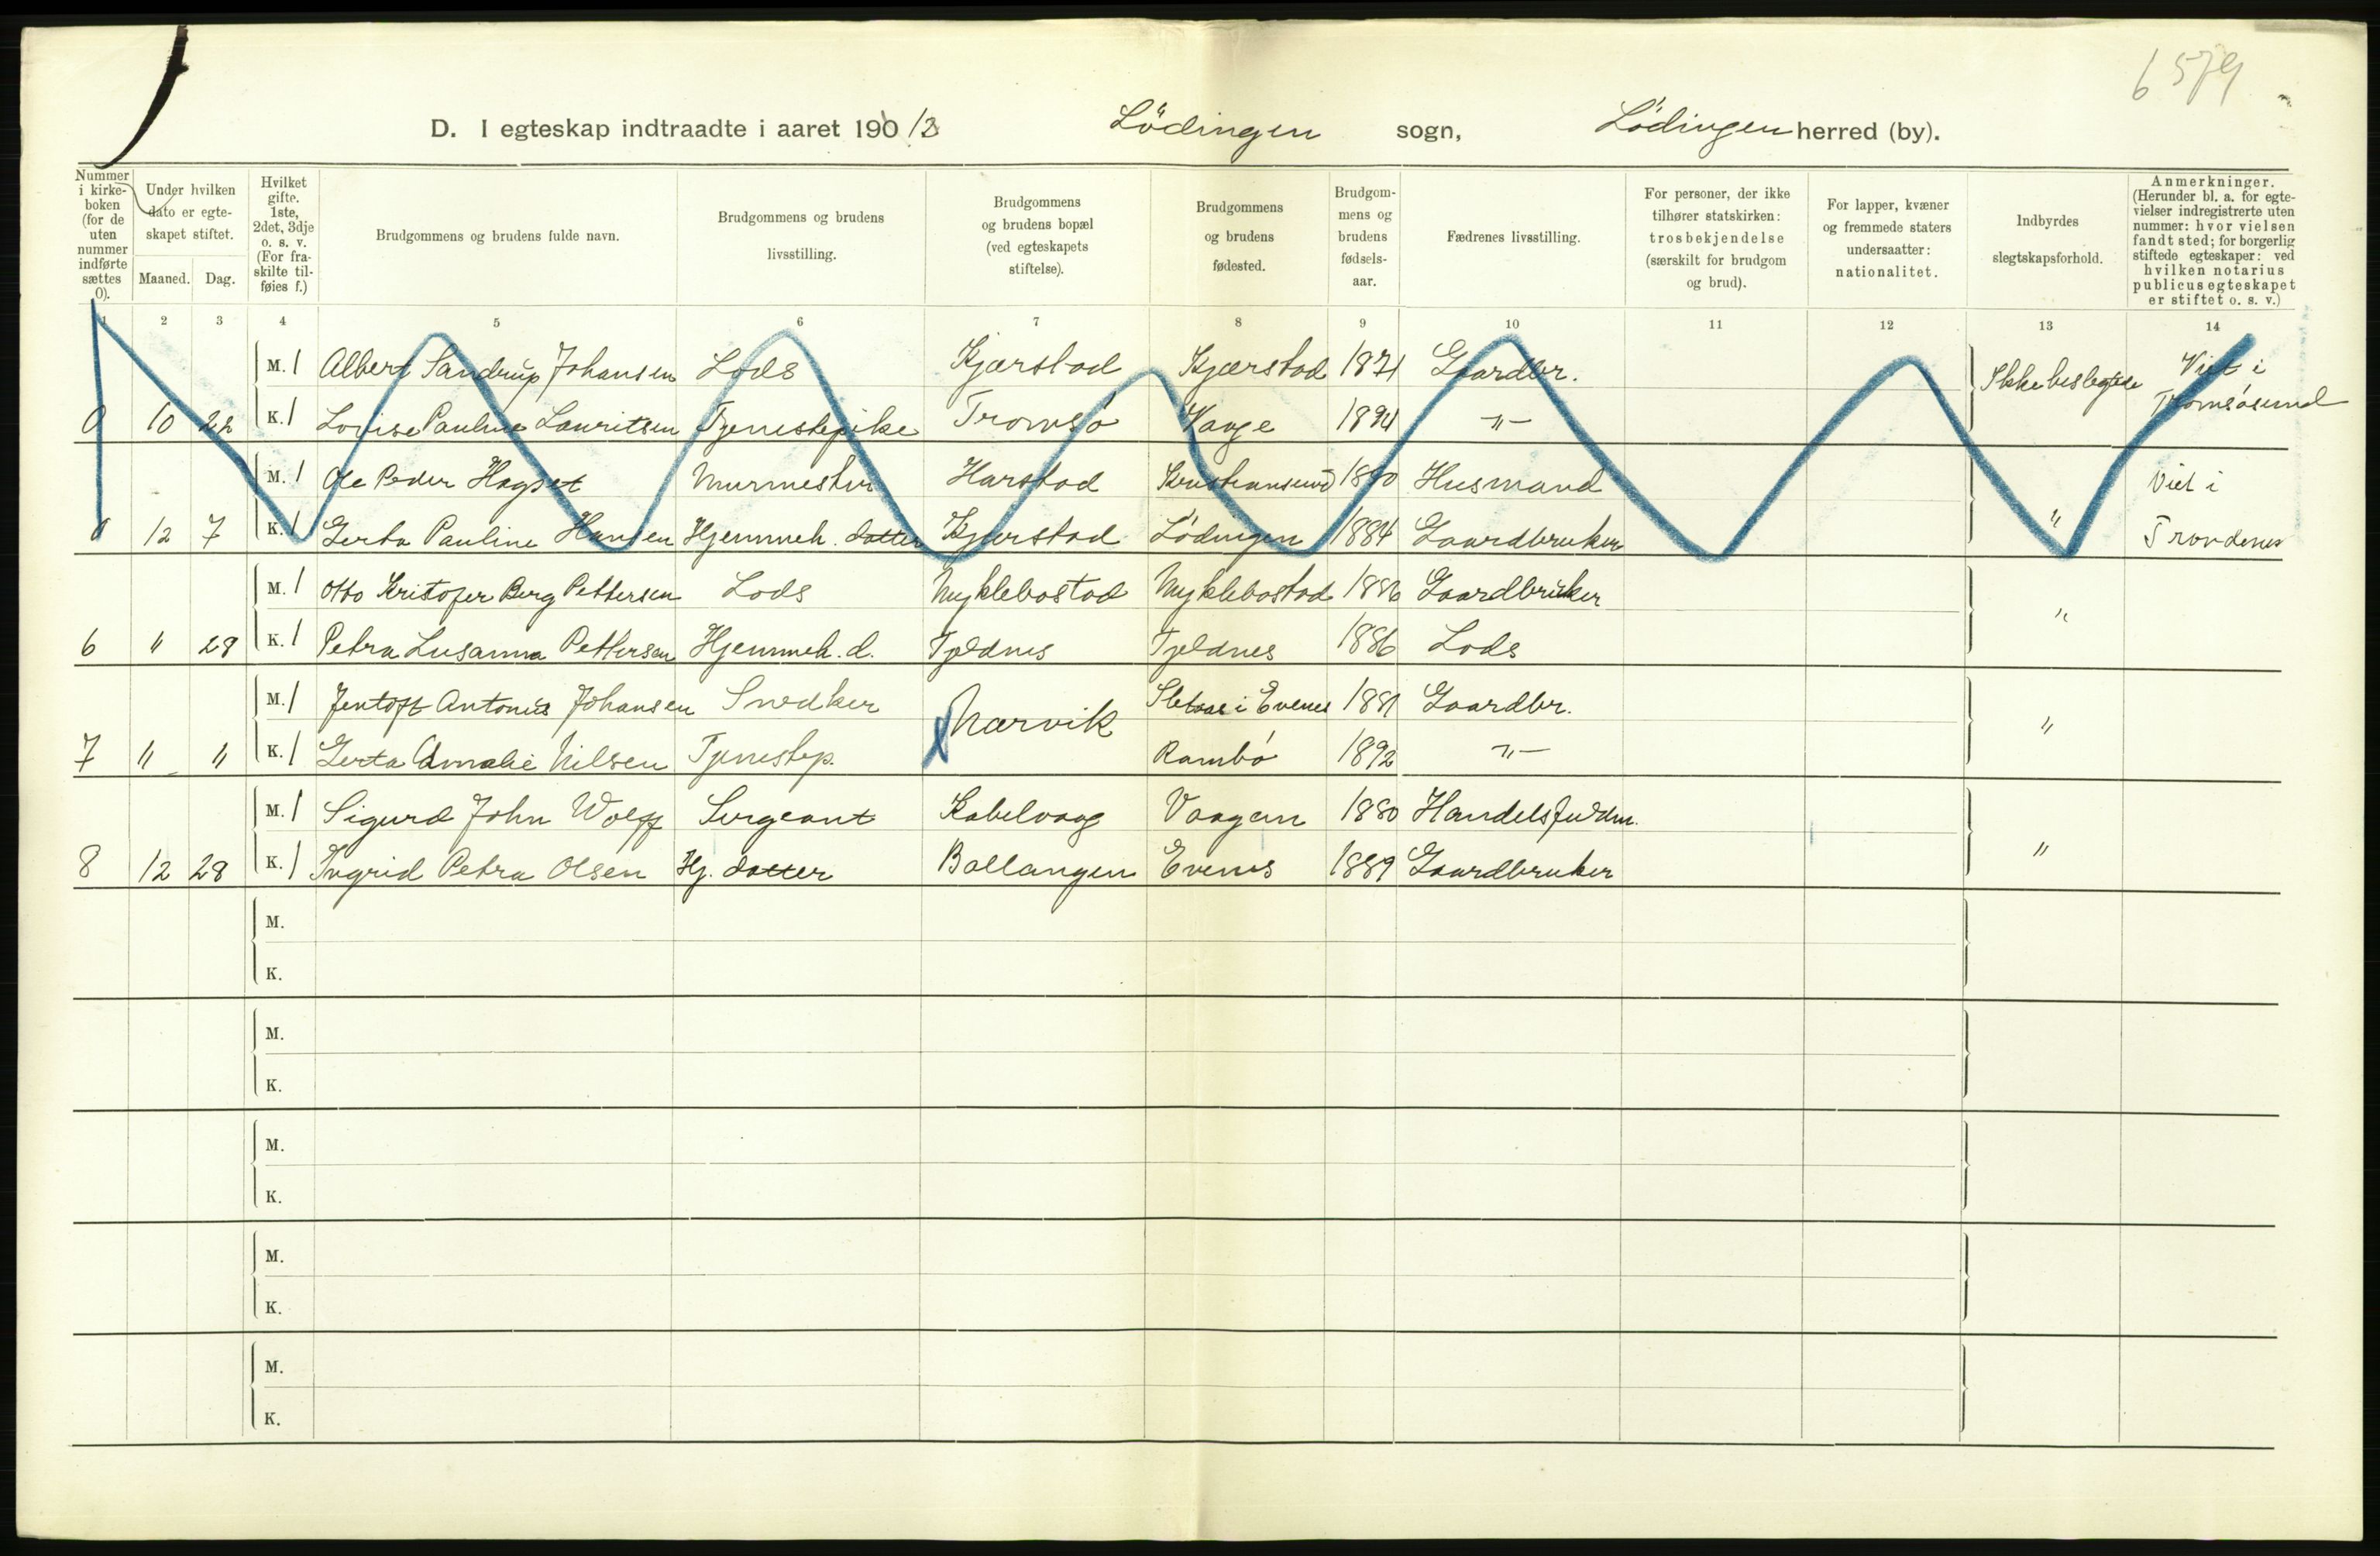 6579
D. I egteskap indtraadte i aaret 190 12 Lödingen sogn, Lödingen herred (by).
Nummer i kirke-boken (for de uten nummer indførte sættes 0).
Under hvilken dato er egte-skapet stiftet.
Maaned. Dag.
Hvilket gifte. 1ste, 2det, 3dje o. s. v. (For fra-skilte til-føies f.)
Brudgommens og brudens fulde navn.
Brudgommens og brudens livsstilling.
Brudgommens og brudens bopæl (ved egteskapets stiftelse).
Brudgommens og brudens fødested.
Brudgom-mens og brudens fødsels-aar.
Fædrenes livsstilling.
For personer, der ikke tilhører statskirken: trosbekjendelse (særskilt for brudgom og brud).
For lapper, kvæner og fremmede staters undersaatter: nationalitet.
Indbyrdes slegtskapsforhold.
Anmerkninger. (Herunder bl. a. for egte-vielser indregistrerte uten nummer: hvor vielsen fandt sted; for borgerlig stiftede egteskaper: ved hvilken notarius publicus egteskapet er stiftet o. s. v.)
1 2 3 4 5 6 7 8 9 10 11 12 13 14
M. 1 Albert Sandrup Johansen Lods Kjærstad Kjærstad 1871 Gaardbr. Ikke beslegtede Viet i
0 10 22 K. 1 Lovise Pauline Lauritsen Tjenestepike Tromsö 1894 -"- Tromsösund
M. 1 Ole Peder Hagset Murmester Harstad Kristiansund 1880 Husmand Viet i
0 12 7 K. 1 Gerta Pauline Hansen Hjemmeh. datter Kjærstad Lödingen 1884 Gaardbruker " Trondenes
M. 1 Otto Kristofer Berg Pettersen Lods Myklebostad Myklebostad 1886 Gaardbruker
6 " 28 K. 1 Petra Susanna Pettersen Hjemmeh. d. Tjeldnes Tjeldnes 1886 Lods "
M. 1 Jentoft Antonius Johansen Snedker Narvik i Evenes 1881 Gaardbr.
7 " " K. 1 Gerta Amalie Nilsen Tjenestep. Rambö 1892 -"- "
M. 1 Sigurd John Wolff Sergeant Kabelvaag Vaagan 1880 Handelsfuldm.
8 12 28 K. 1 Ingrid Petra Olsen Hj. datter Ballangen Evenes 1889 Gaardbruker "
M.
K.
M.
K.
M.
K.
M.
K.
M.
K.